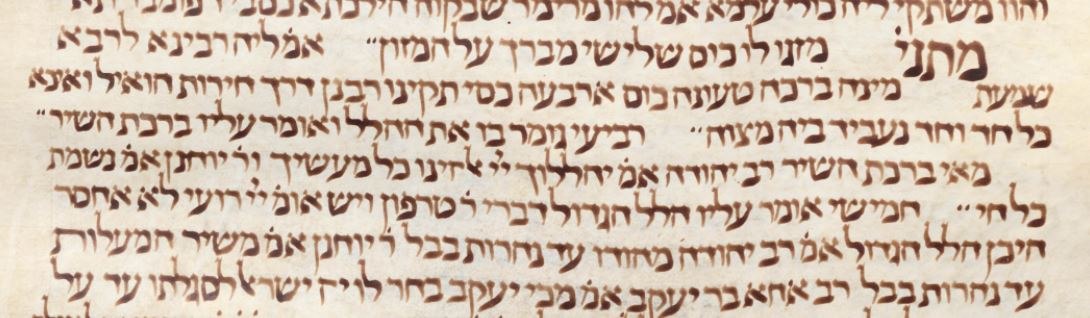 והוו משתקי ליה כולי עלמא אמ' להו מרימר שבקוה
מתני' מזגו לו כוס שלישי מברך על המזון" אמ' ליה רבינא לרבא
שמעת מינה ברכה טעונה כוס ארבעה כסי תקינו רבנן דרך חירות הואיל ואיצא
כל חד וחד נעביד ביה מצוה" רביעי גומר בו את ההלל ואומר עליו ברכת השיר"
מאי ברכת השיר רב יהודה אמ' יהללוך יי' אלהינו כל מעשיך ור' יוחנן אמ' נשמת
כל חי" חמישי אומר עליו הלל הגדול דברי ר' טרפון ויש אומ' יי' רועי לא אחסר
היכן הלל הגדול אמ' רב יהודה מהודו עד נהרות בבל ר' יוחנן אמ' משיר המעלות
עד נהרות בבל רב אחא בר יעקב אמ' מכי יעקב בחר לו יה ישראל לסגלתו עד על